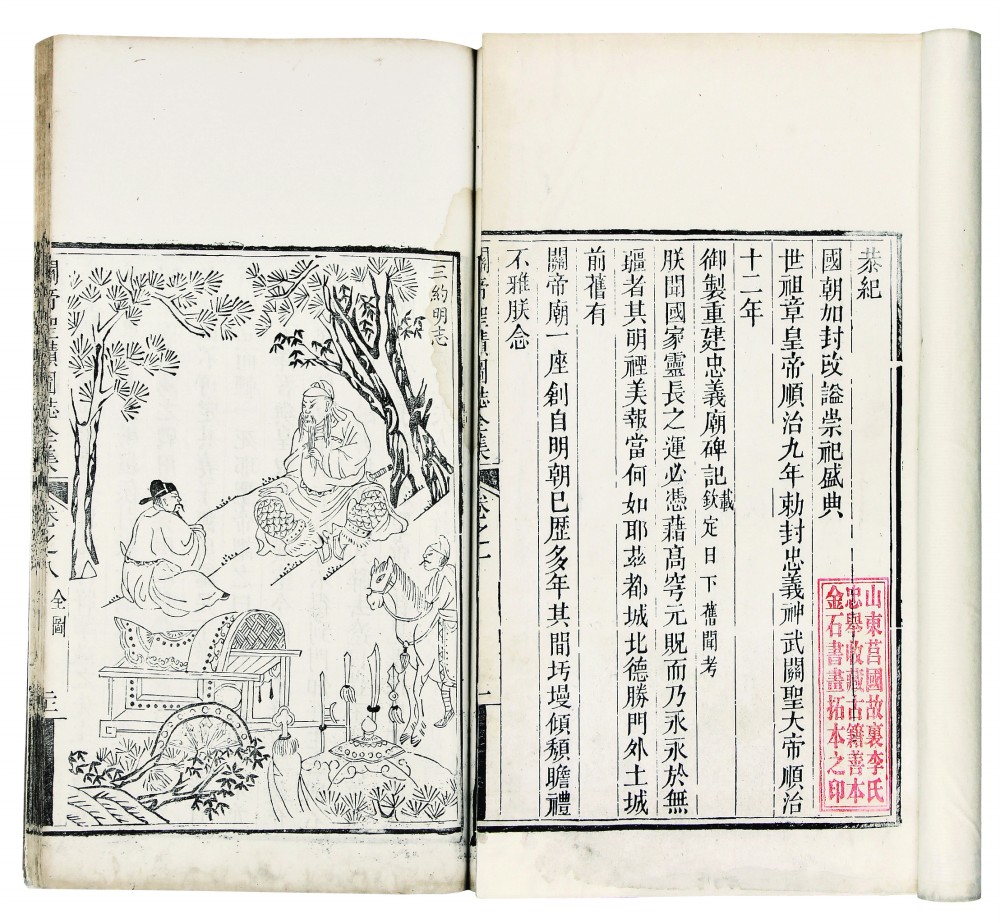 恭紀
國朝加封改諡崇祀盛典
世祖章皇帝順治九年勅封忠義神武關聖大帝順治
十二年
御製重建忠義廟碑記載欽定日下舊聞考
朕聞國家靈長之運必憑藉高穹元貺而乃永永於無
疆者其明禋美報當何如耶茲都城北德勝門外土城
前舊有
關帝廟一座創自明朝已歷多年其間圬墁傾頹瞻禮
不雅朕念
山東莒國故裏李氏
忠舉收藏古籍善本
金石書畫拓本之印
關帝聖蹟圖誌全集
卷之一
三約明志
關帝聖蹟圖誌全集
卷之八
全圖